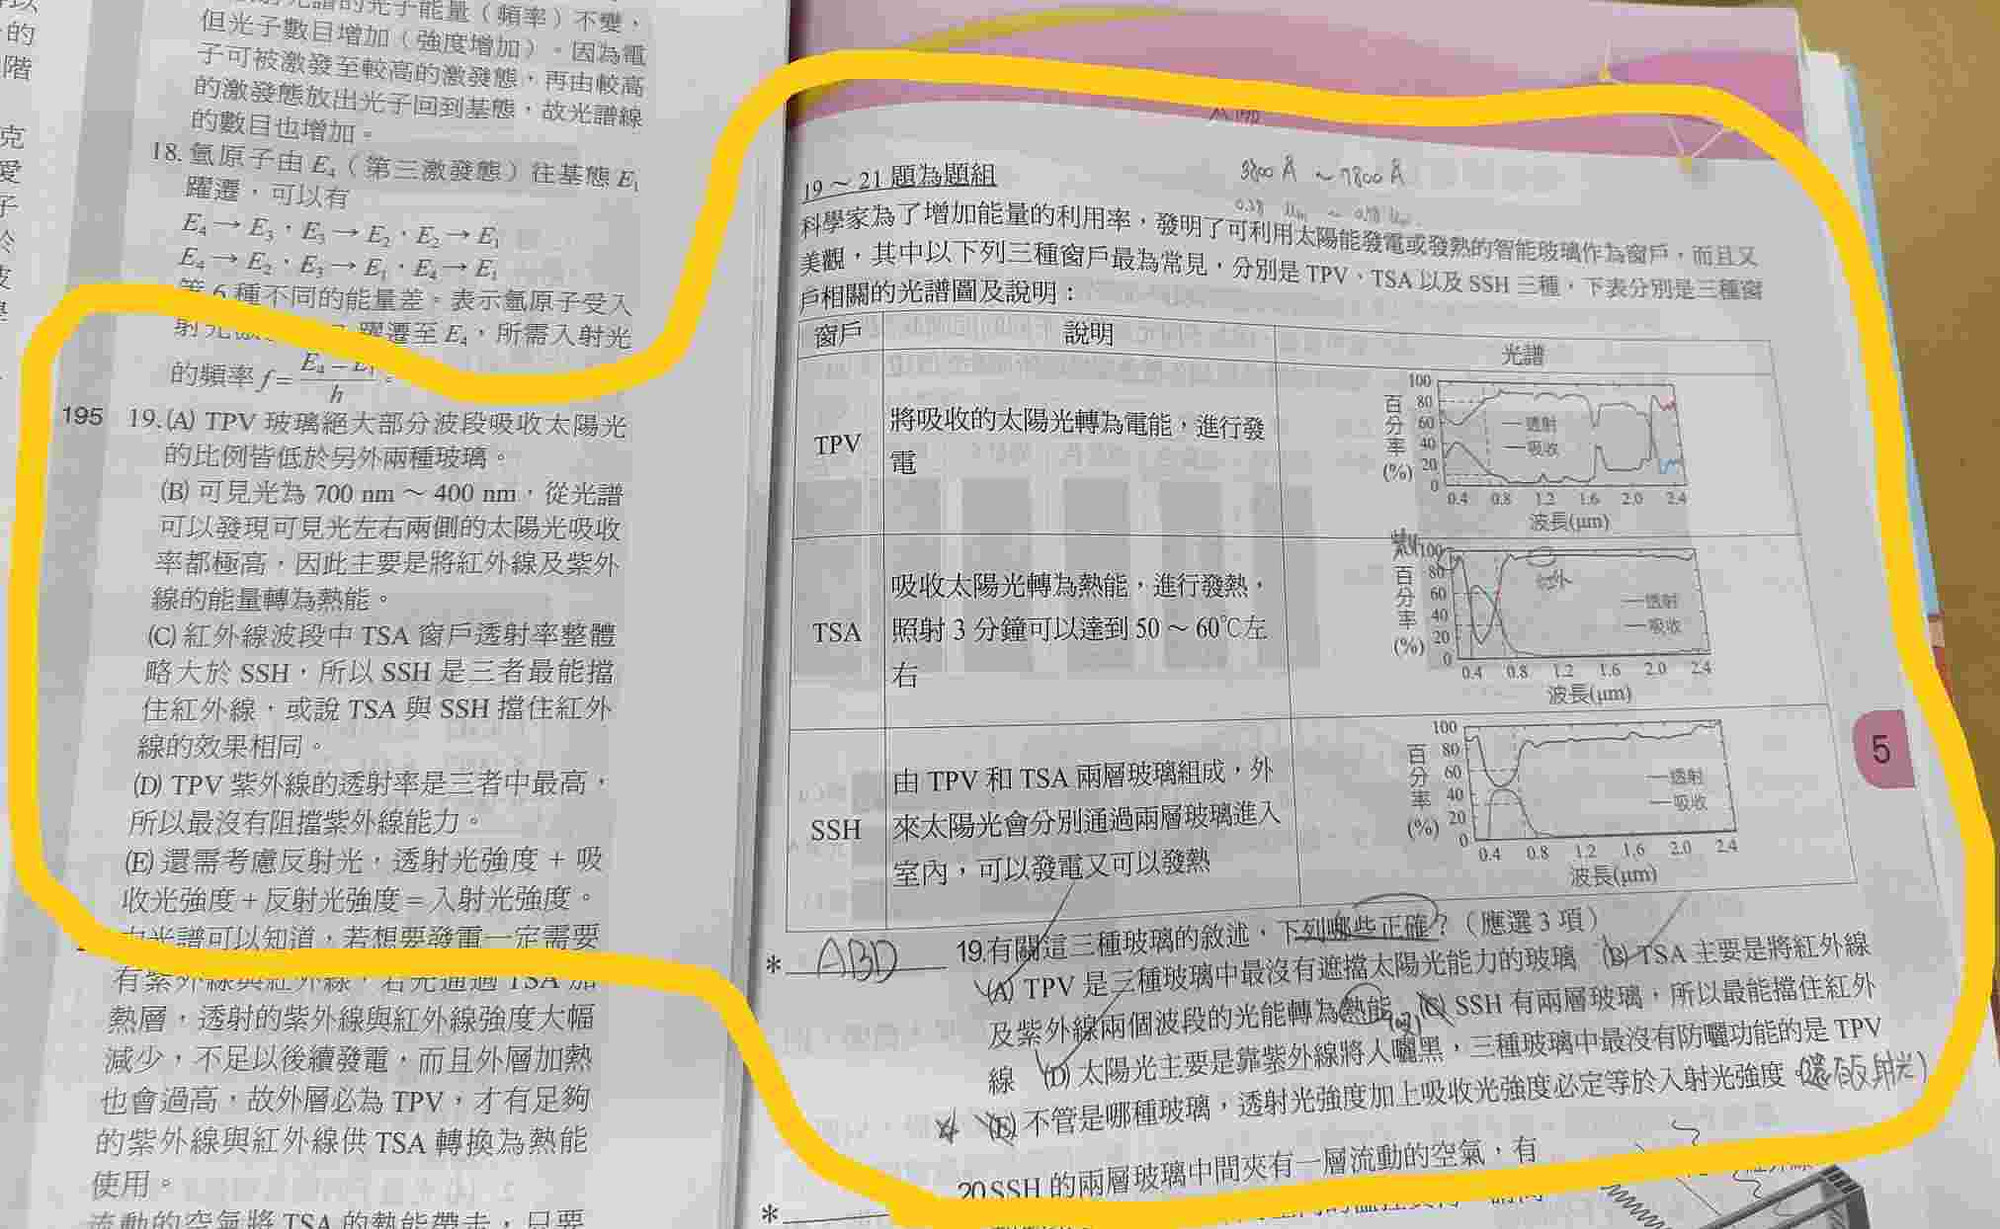 但光子數目增加（強度增加）。因為電
子可被激發至較高的激發態，再由較高
的激發態放出光子回到基態，故光譜線
的數目也增加。
18. 氫原子由 E₄（第三激發態）往基態 E₁
躍遷，可以有
E₄→E₃，E₃→E₂，E₂→E₁
E₄→E₂，E₃→E₁，E₄→E₁
等 6 種不同的能量差。表示氫原子受入
躍遷至 E₄，所需入射光
的頻率 f= E₄－E₁ / h
195
19. (A) TPV 玻璃絕大部分波段吸收太陽光
的比例皆低於另外兩種玻璃。
(B) 可見光為 700 nm～400 nm，從光譜
可以發現可見光左右兩側的太陽光吸收
率都極高，因此主要是將紅外線及紫外
線的能量轉為熱能。
(C) 紅外線波段中 TSA 窗戶透射率整體
略大於 SSH，所以 SSH 是三者最能擋
住紅外線，或說 TSA 與 SSH 擋住紅外
線的效果相同。
(D) TPV 紫外線的透射率是三者中最高，
所以最沒有阻擋紫外線能力。
(E) 還需考慮反射光，透射光強度 + 吸
收光強度 + 反射光強度 = 入射光強度。
由光譜可以知道，若想要發電一定需要
有紫外線與紅外線，若先通過 TSA 加
熱層，透射的紫外線與紅外線強度大幅
減少，不足以後續發電，而且外層加熱
也會過高，故外層必為 TPV，才有足夠
的紫外線與紅外線供 TSA 轉換為熱能
使用。
流動的空氣將 TSA 的熱能帶走，只要
3800 Å ~ 7800 Å
19～21 題為題組
科學家為了增加能量的利用率，發明了可利用太陽能發電或發熱的智能玻璃作為窗戶，而且又
美觀，其中以下列三種窗戶最為常見，分別是 TPV、TSA 以及 SSH 三種，下表分別是三種窗
戶相關的光譜圖及說明：
窗戶 說明 光譜
TPV
將吸收的太陽光轉為電能，進行發
電
百分率(%)
100
80
60
40
20
0
透射
吸收
0.4 0.8 1.2 1.6 2.0 2.4
波長(μm)
TSA
吸收太陽光轉為熱能，進行發熱，
照射 3 分鐘可以達到 50～60℃左
右
紫外
百分率(%)
100
80
60
40
20
0
紅外
透射
吸收
0.4 0.8 1.2 1.6 2.0 2.4
波長(μm)
SSH
由 TPV 和 TSA 兩層玻璃組成，外
來太陽光會分別通過兩層玻璃進入
室內，可以發電又可以發熱
百分率(%)
100
80
60
40
20
0
透射
吸收
0.4 0.8 1.2 1.6 2.0 2.4
波長(μm)
5
* ABD 19. 有關這三種玻璃的敘述，下列哪些正確？（應選 3 項）
(A) TPV 是三種玻璃中最沒有遮擋太陽光能力的玻璃 (B) TSA 主要是將紅外線
及紫外線兩個波段的光能轉為熱能 (C) SSH 有兩層玻璃，所以最能擋住紅外
線 (D) 太陽光主要是靠紫外線將人曬黑，三種玻璃中最沒有防曬功能的是 TPV
(E) 不管是哪種玻璃，透射光強度加上吸收光強度必定等於入射光強度 (還有反射光)
* 20. SSH 的兩層玻璃中間夾有一層流動的空氣，有